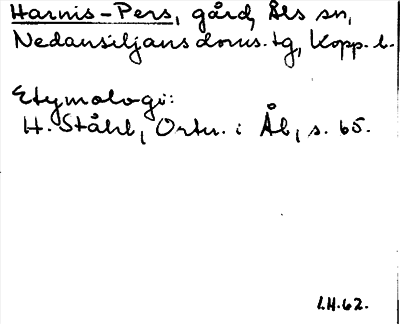 Harnis-Pers, gård, Åls sn,
Nedansiljans doms.tg, Kopp. l.
Etymologi:
H. Ståhl, Ortn. i Ål, s. 65.
I.H.62.